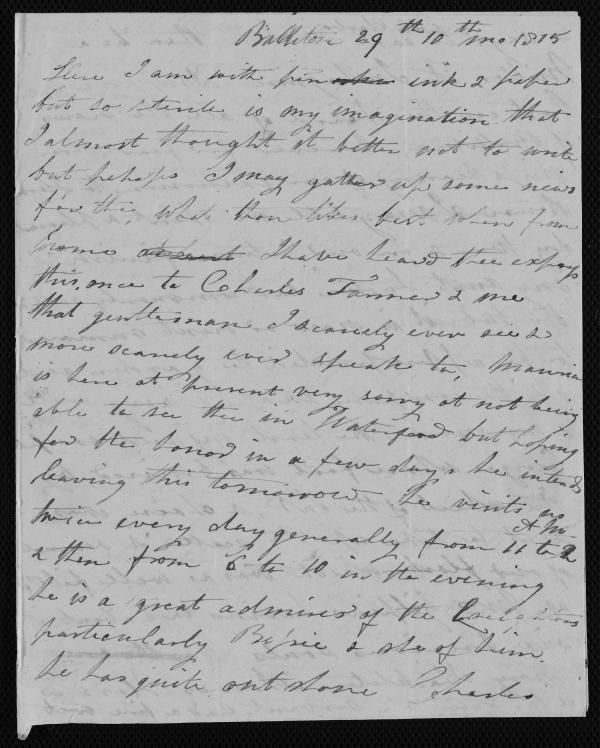 Ballitore 29th 10th mo 1815
Here I am with pen ink & paper
but so sterile is my imagination that
I almost thought it better not to write
but perhaps I may gather up some news
for thee, what thou likes best when from
home I have heard thee express
this, once to Charles Farmer & me
that gentleman I scarcely ever see &
more scarcely ever speak to,
is here at present very sorry at not being
able to see thee in Waterford but hoping
for the honor in a few days he intends
leaving this tomorrow he visits us
twice every day generally from 11 to 2
& then from 6 to 10 in the evening
he is a great admirer of the Creightons
particularly Bessie & she of him.
he has quite out shone Charles